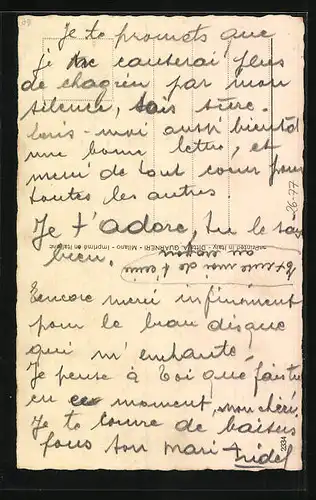 Je te promets que
je ne te causerai plus
de chagrin par mon
silence, sois sûre.
Ecris-moi aussi bientôt
une bonne lettre, et
merci de tout coeur pour
toutes les autres.
Je t'adore, tu le sais
bien.
Encore merci infiniment
pour le beau disque
qui m'enchante.
Je pense à toi que fais tu
en ce moment, mon chéri.
Je te couvre de baisers
fous ton mari
Excuse moi de t'écrire
au crayon
Printed in Italy - Ditta A. GUARNERI - Milano - Imprimé en Italie
26-77
2334